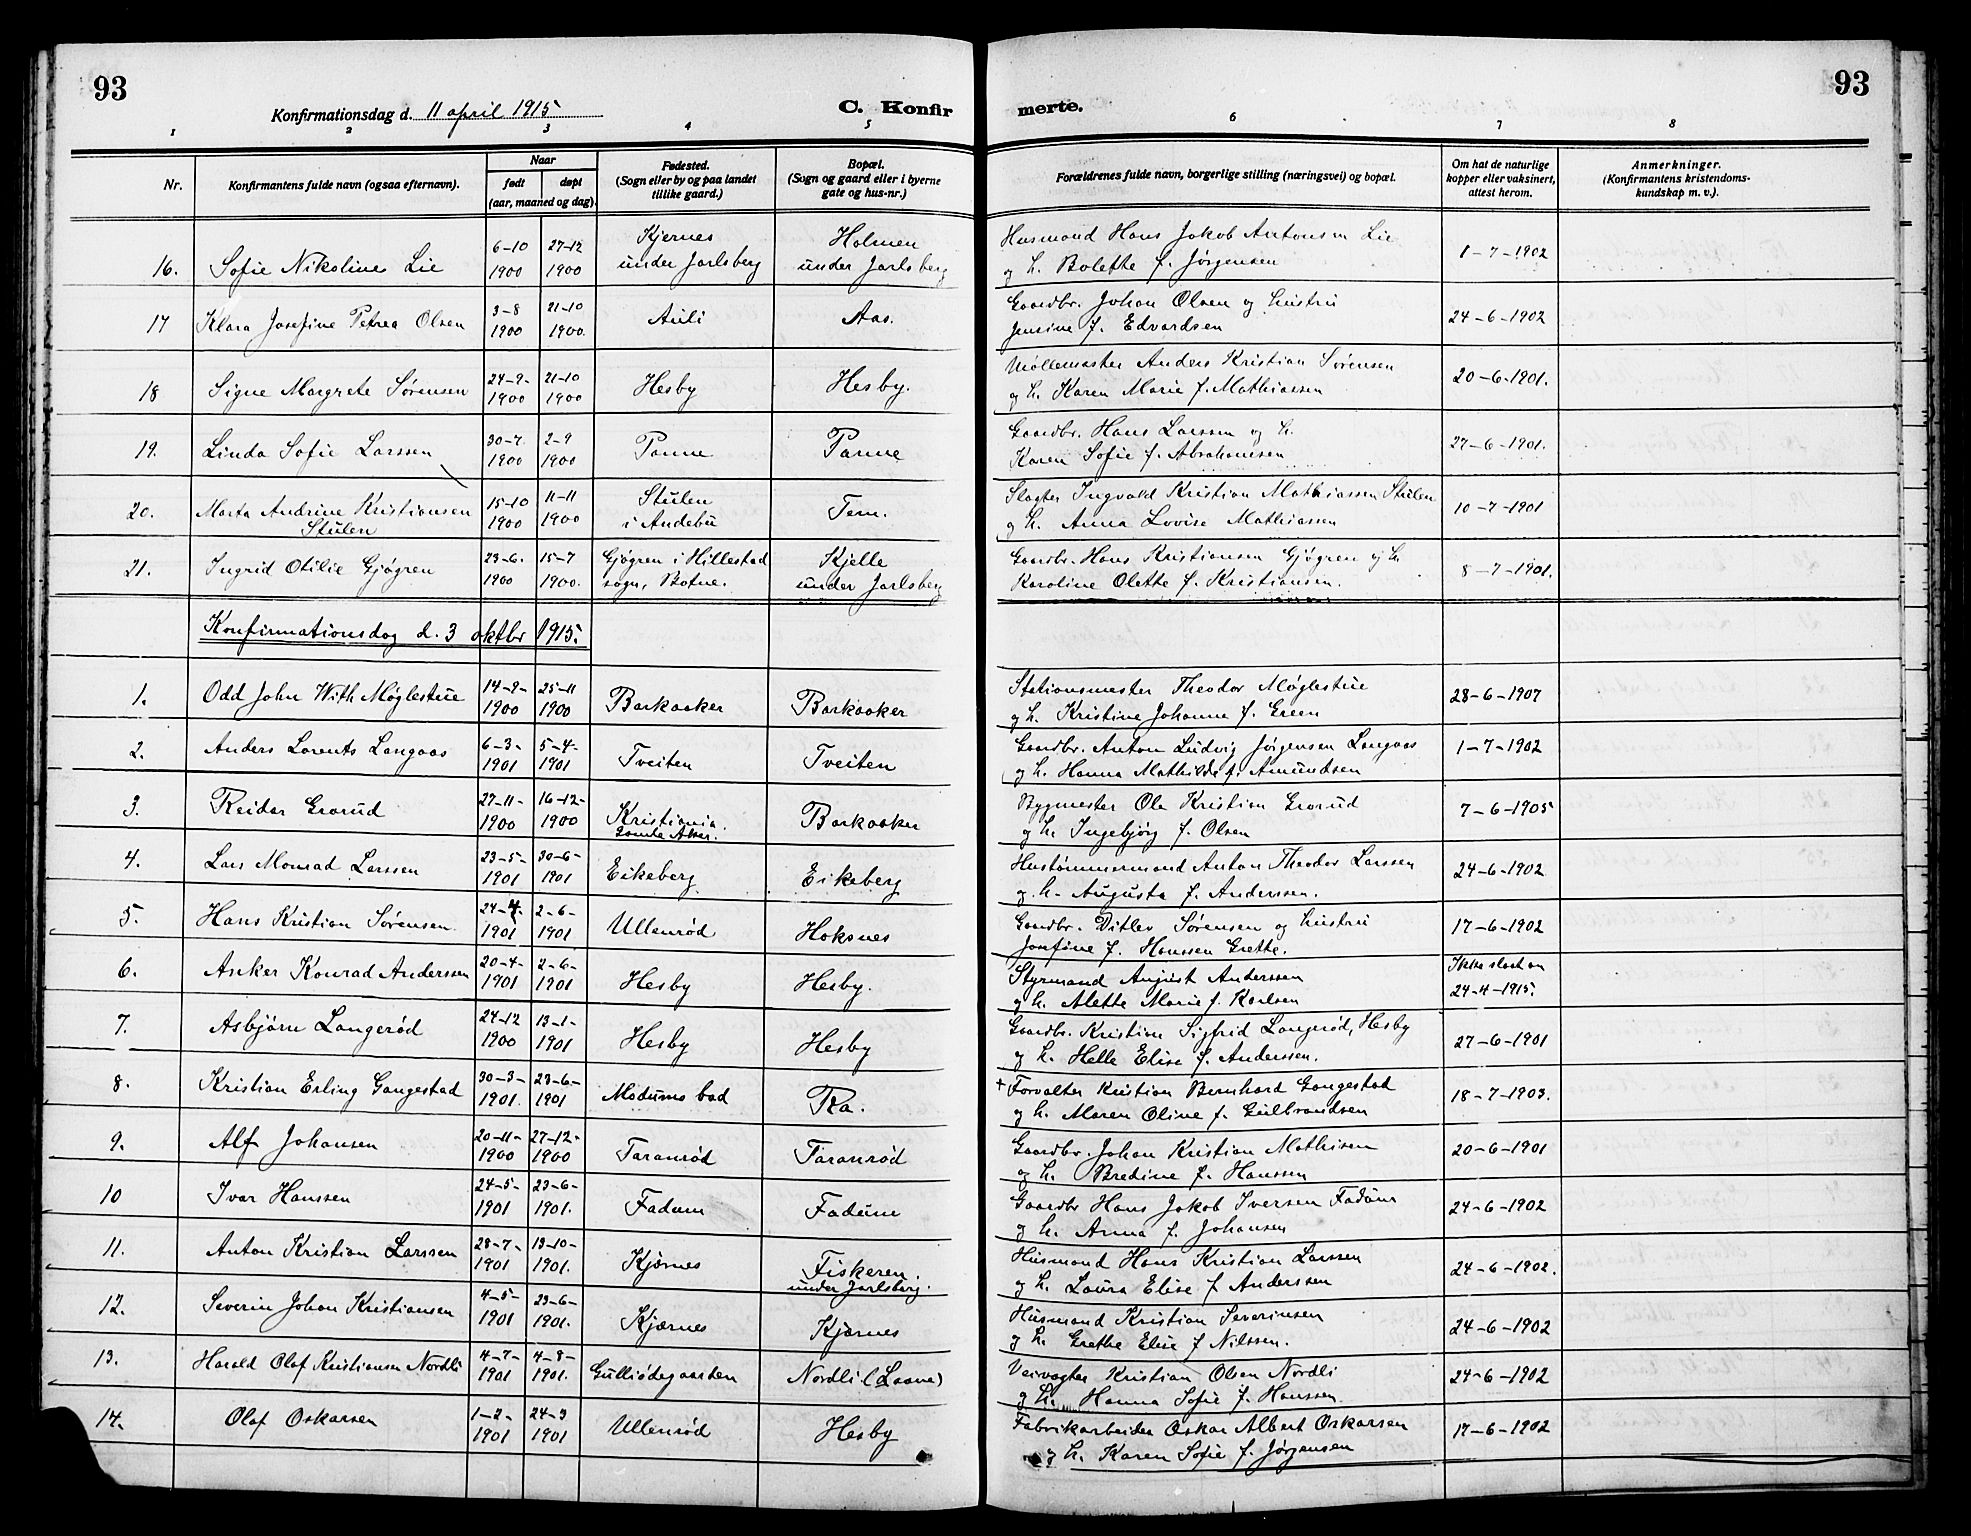 93
Konfirmationsdag d. 11 april 1915
C. Konfir
merte.
93
1 2 3 4 5 6 7 8
Nr.
Konfirmantens fulde navn (ogsaa efternavn).
Naar
født
døpt
(aar, maaned og dag).
Fødested.
(Sogn eller by og paa landet
tillike gaard.)
Bopæl.
(Sogn og gaard eller i byerne
gate og hus-nr.)
Forældrenes fulde navn, borgerlige stilling (næringsvei) og bopæl.
Om hat de naturlige
kopper eller vaksinert,
attest herom.
Anmerkninger.
(Konfirmantens kristendoms-
kundskap m. v.).
16. Sofie Nikoline Lie 6-10 1900 27-12 1900 Kjernes under Jarlsberg Holmen under Jarlsberg Husmand Hans Jakob Antonsen Lie
og h. Bolette f. Jørgensen 1-7-1902
17 Klara Josefine Petrea Olsen 3-8 1900 21-10 1900. Auli Aas. Gaardbr. Johan Olsen og hustru
Jensine f. Edvardsen 24-6-1902
18 Signe Margrete Sørensen 24-9- 1900 21-10 1900 Hesby Hesby. Møllemester Anders Kristian Sørensen
og h. Karen Marie f. Mathiassen 20-6-1901.
19. Linda Sofie Larssen 30-7. 1900 2-9 1900 Panne Panne Gaardbr. Hans Larssen og h.
Karen Sofie f. Abrahamsen 27-6-1901.
20. Marta Andrine Kristiansen Stulen 15-10 1900 11-11 1900 Stulen i Andebu Tem. Slagter Ingvald Kristian Mathiassen Stulen
og h. Anna Lovise Mathiassen 10-7-1901
21. Ingrid Otilie Gjøgren 23-6. 1900 15-7 1900. Gjøgren i Hillestad sogn, Botne. Kjelle under Jarlsberg Gaardbr. Hans Kristiansen Gjøgren og h
Karoline Olette f. Kristiansen. 8-7-1901.
Konfirmationsdag d. 3 oktbr 1915.
1. Odd John With Møglestue 14-9- 1900 25-11 1900 Barkaaker Barkaaker Stationsmester Theodor Møglestue
og h. Kristine Johanne f. Green 28-6-1907
2. Anders Lorents Langaas 6-3- 1901 5-4- 1901 Tveiten Tveiten Gaardbr. Anton Ludvig Jørgensen Langaas
og h. Hanna Mathilde f. Amundsen 1-7-1902
3. Reidar Grorud 27-11- 1900 16-12- 1900 Kristiania. Gamle Aker. Barkaaker Bygmester Ole Kristian Grorud
og h. Ingebjørg f. Olsen 7-6-1905
4. Lars Monrad Larssen 23-5- 1901 30-6- 1901 Eikeberg Eikeberg Hustømmermand Anton Theodor Larssen
og h. Augusta f. Anderssen. 24-6-1902
5. Hans Kristian Sørensen. 24-4- 1901 2-6- 1901 Ullenrød Hoksnes Gaardbr. Ditlev Sørensen og hustru
Josefine f. Hanssen Grette. 17-6-1902
6. Anker Konrad Anderssen 20-4- 1901 2-6- 1901 Hesby Hesby. Styrmand August Anderssen
og h. Alette Marie f. Karlsen Ikke slaat an 24-4-1915.
7. Asbjørn Langerød 24-12 1900 13-1- 1901 Hesby Hesby Gaardbr. Kristian Sigfrid Langerød, Hesby
og h. Helle Elise f. Anderssen. 27-6-1901
8. Kristian Erling Gangestad 30-3- 1901. 23-6- 1901 Modums bad Ra. + Forvalter Kristian Bernhard Gangestad
og h. Maren Oline f. Gulbrandsen 18-7-1903.
9. Alf Johansen 20-11- 1900 27-12- 1900 Taranrød Taranrød Gaardbr. Johan Kristian Mathisen
og h. Bredine f. Hanssen 20-6-1901
10 Ivar Hanssen 24-5- 1901 23-6- 1901. Fadum Fadum Gaardbr Hans Jakob Iversen Fadum
og h. Anna f. Johansen 24-6-1902
11. Anton Kristian Larssen 28-7- 1901 13-10- 1901. Kjærnes Fiskeren. under Jarlsberg. Husmand Hans Kristian Larssen
og h. Laura Elise f Anderssen 24-6-1902.
12. Severin Johan Kristiansen 4-5- 1901 23-6- 1901. Kjærnes Kjærnes Husmand Kristian Severinsen
og h. Grethe Elise f Nilssen. 24-6-1902
13. Harald Olaf Kristiansen Nordli 4-7- 1901 4-8- 1901. Gulliødegaarden Nordli (Laane) Veivogter Kristian Olsen Nordli
og h. Hanna Sofie f. Hanssen. 24-6-1902
14. Olaf Oskarsen 1-2- 1901 24-3 1901 Ullenrød Hesby Fabrikarbeider Oskar Albert Oskarsen
og h. Karen Sofie f. Jørgensen 17-6-1902